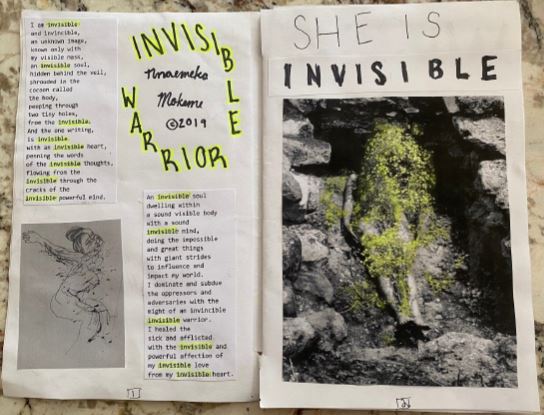 I am invisible
and invincible,
an unknown image,
known only with
my visible mess,
an invisible soul,
hidden behind the veil,
shrouded in the
cocoon called
the body,
peeping through
two tiny holes,
from the invisible.
And the one writing,
is invisible
with an invisible heart,
penning the words
of the invisible thoughts,
flowing from the
invisible through the
cracks of the
invisible powerful mind.
INVISIBLE
WARRIOR
Nnaemeka
Mokeme
©2019
An invisible soul
dwelling within
a sound visible body
with a sound
invisible mind,
doing the impossible
and great things
with giant strides
to influence and
impact my world.
I dominate and subdue
the oppressors and
adversaries with the
might of an invincible
invisible warrior.
I healed the
sick and afflicted
with the invisible and
powerful affection of
my invisible love
from my invisible heart.
1
SHE IS
INVISIBLE